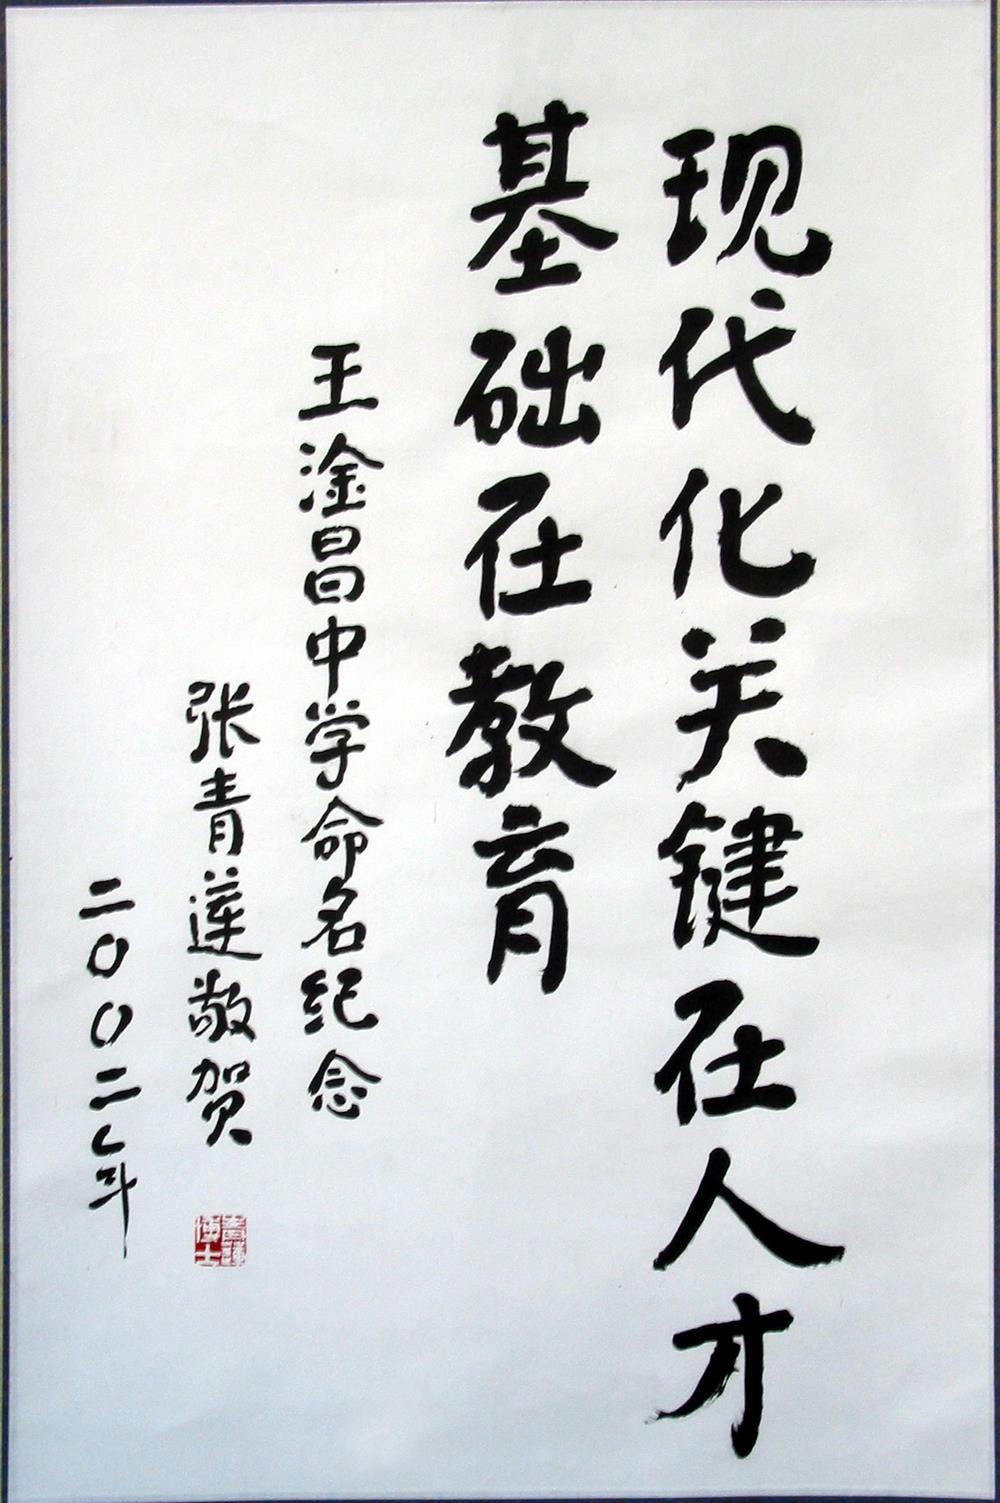 现代化关键在人才
基础在教育
王淦昌中学命名纪念
张青莲敬贺
二〇〇二年
青莲博士